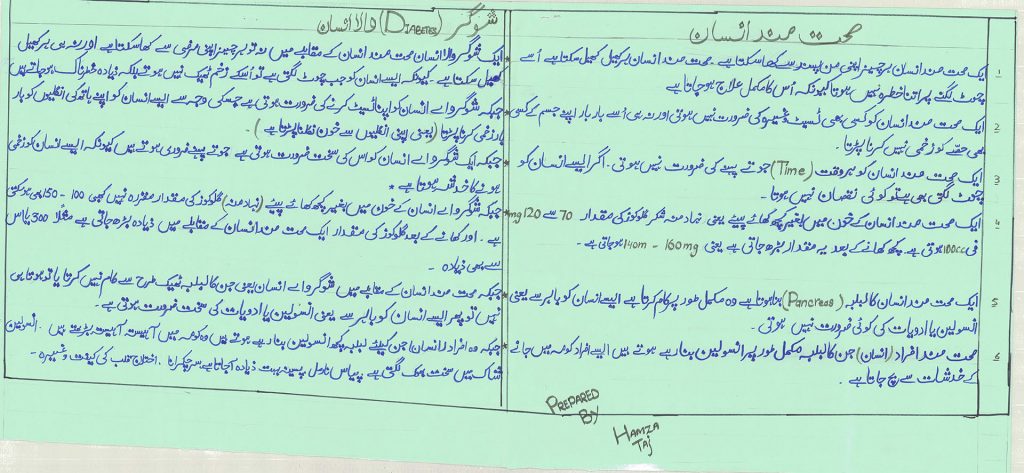 صحت مند انسان
1 ایک صحت مند انسان ہر چیز اپنی من پسند سے کھا سکتا ہے۔ صحت مند انسان ہر کھیل کھیل سکتا ہے۔ اُسے
چوٹ لگنے پر اتنا خطرہ نہیں ہوتا کیونکہ اُس کا مکمل علاج ہو جاتا ہے
2 ایک صحت مند انسان کو کسی بھی ٹیسٹ وغیرہ کی ضرورت نہیں ہوتی اور نہ ہی اُسے بار بار اپنے جسم کے کسی
بھی حصے کو زخمی نہیں کرنا پڑتا۔
3 ایک صحت مند انسان کو ہر وقت (Time) جوتے پہنے کی ضرورت نہیں ہوتی۔ اگر ایسے انسان کو
چوٹ لگتی بھی ہے تو کوئی نقصان نہیں ہوتا
4 ایک صحت مند انسان کے خون میں بغیر کچھ کھائے پیئے یعنی نہار منہ شکر گلوکوز کی مقدار 70 سے 120 mg
فی 100cc ہوتی ہے۔ کچھ کھانے کے بعد یہ مقدار بڑھ جاتی ہے یعنی 140m - 160mg ہو جاتی ہے۔
5 ایک صحت مند انسان کا لبلبہ (Pancreas) بنا ہوتا ہے وہ مکمل طور پر کام کرتا ہے ایسے انسان کو باہر سے یعنی
انسولین یا ادویات کی کوئی ضرورت نہیں ہوتی۔
6 صحت مند افراد (انسان) جن کا لبلبہ مکمل طور پر انسولین بنا رہے ہوتے ہیں ایسے افراد کومہ میں جانے
کے خدشات سے بچ جاتا ہے۔
شوگر (DIABETES) والا انسان
* ایک شوگر والا انسان صحت مند انسان کے مقابلے میں نہ تو ہر چیز اپنی مرضی سے کھا سکتا ہے اور نہ ہی ہر کھیل
کھیل سکتا ہے۔ کیونکہ ایسے انسان کو جب چوٹ لگتی ہے تو اُسکے زخم ٹھیک نہیں ہوتے بلکہ زیادہ خطرناک ہو جاتے ہیں
* جبکہ شوگر والے انسان کو اپنا ٹیسٹ کرنے کی ضرورت ہوتی ہے جسکی وجہ سے ایسے انسان کو اپنے ہاتھ کی انگلیوں کو بار
بار زخمی کرنا پڑتا (یعنی اپنی انگلیوں سے خون نکلنا پڑتا ہے)۔
* جبکہ ایک شوگر والے انسان کو اس کی سخت ضرورت ہوتی ہے جوتے پہنے ضروری ہوتے ہیں کیونکہ ایسے انسان کو زخمی
ہونے کا خدشہ ہوتا ہے *
* جبکہ شوگر والے انسان کے خون میں بغیر کچھ کھائے پیئے (نہار منہ) گلوکوز کی مقدار مقررہ نہیں کبھی 100 - 150 بھی ہو سکتی
ہے۔ اور کھانے کے بعد گلوکوز کی مقدار ایک صحت مند انسان کے مقابلے میں زیادہ بڑھ جاتی ہے مثلاً 300 یا اس
سے بھی زیادہ -
* جبکہ صحت مند انسان کے مقابلے میں شوگر والے انسان یعنی جن کا لبلبہ ٹھیک طرح سے کام نہیں کرتا یا تو ہوتا ہی
نہیں تو پھر ایسے انسان کو باہر سے یعنی انسولین یا ادویات کی سخت ضرورت ہوتی ہے۔
* جبکہ وہ افراد (انسان) جن کیلئے لبلبہ کچھ انسولین بنا رہے ہوتے ہیں وہ کومہ میں آہستہ آہستہ بڑھتے ہیں۔ انسولین
شاک میں سخت بھوک لگتی ہے۔ پیاس نارمل پسینہ بہت زیادہ آجاتا ہے، سر چکرانا۔ اختلاج قلب کی کیفیت وغیرہ۔
PREPARED
BY
HAMZA
TAJ